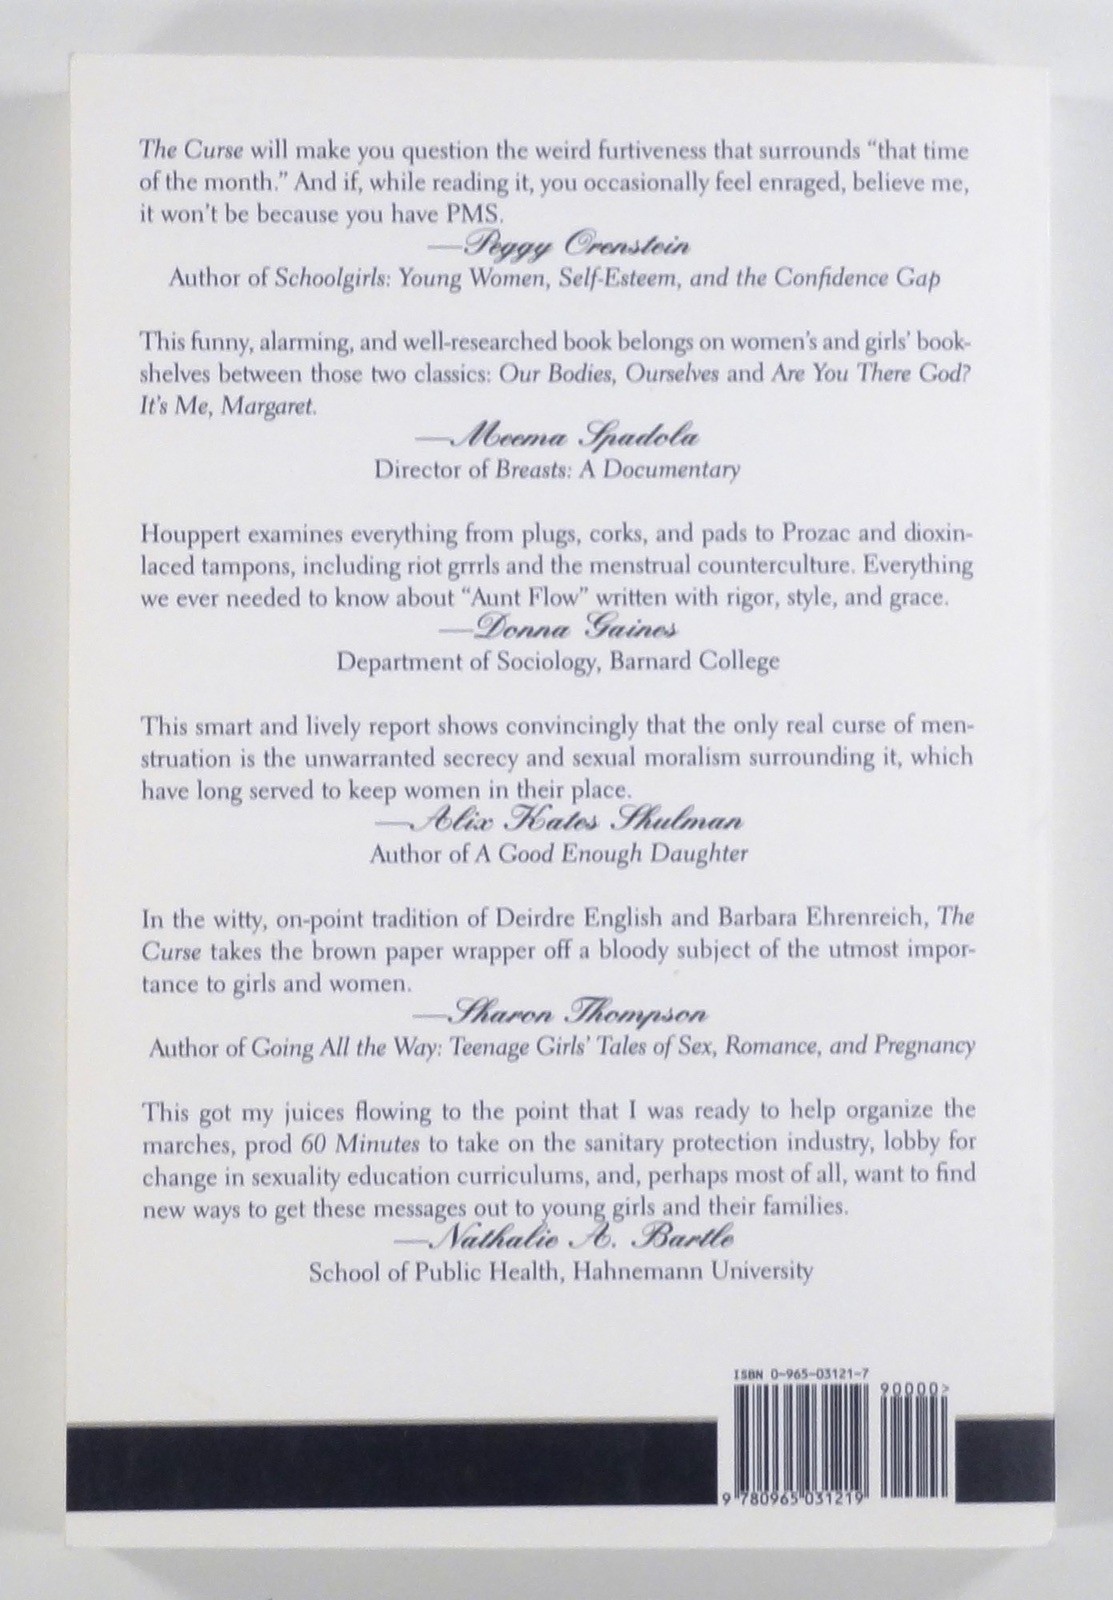 The Curse will make you question the weird furtiveness that surrounds “that time
of the month.” And if, while reading it, you occasionally feel enraged, believe me,
it won't be because you have PMS.
—Peggy Orenstein
Author of Schoolgirls: Young Women, Self-Esteem, and the Confidence Gap
This funny, alarming, and well-researched book belongs on women's and girls' book-
shelves between those two classics: Our Bodies, Ourselves and Are You There God?
It's Me, Margaret.
—Meema Spadola
Director of Breasts: A Documentary
Houppert examines everything from plugs, corks, and pads to Prozac and dioxin-
laced tampons, including riot grrrls and the menstrual counterculture. Everything
we ever needed to know about “Aunt Flow” written with rigor, style, and grace.
—Donna Gaines
Department of Sociology, Barnard College
This smart and lively report shows convincingly that the only real curse of men-
struation is the unwarranted secrecy and sexual moralism surrounding it, which
have long served to keep women in their place.
—Alix Kates Shulman
Author of A Good Enough Daughter
In the witty, on-point tradition of Deirdre English and Barbara Ehrenreich, The
Curse takes the brown paper wrapper off a bloody subject of the utmost impor-
tance to girls and women.
—Sharon Thompson
Author of Going All the Way: Teenage Girls' Tales of Sex, Romance, and Pregnancy
This got my juices flowing to the point that I was ready to help organize the
marches, prod 60 Minutes to take on the sanitary protection industry, lobby for
change in sexuality education curriculums, and, perhaps most of all, want to find
new ways to get these messages out to young girls and their families.
—Nathalie A. Bartle
School of Public Health, Hahnemann University
ISBN 0-965-03121-7
90000>
9 780965 031219